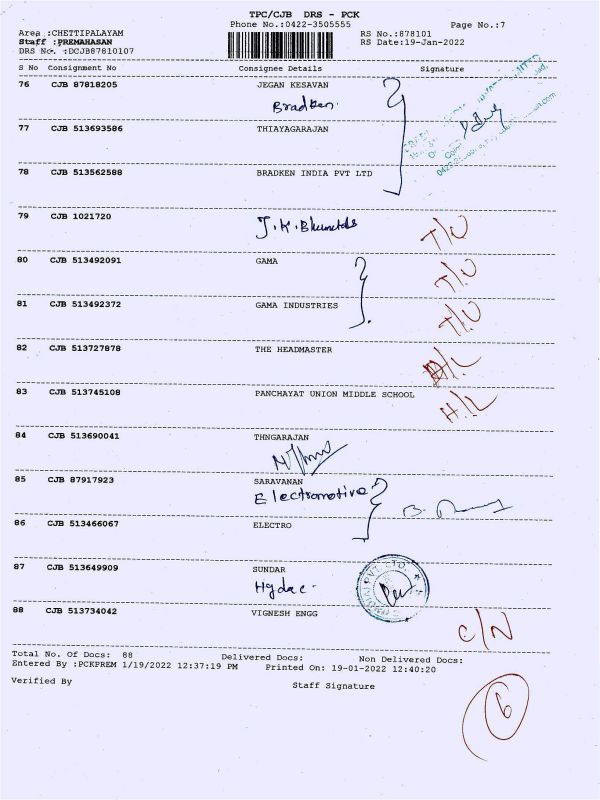 TPC/CJB DRS - PCK
Phone No.:0422-3505555 Page No.:7
Area :CHETTIPALAYAM RS No.:878101
Staff :PREMAHASAN RS Date:19-Jan-2022
DRS No. :DCJB87810107
S No Consignment No Consignee Details Signature
76 CJB 87818205 JEGAN KESAVAN
Bradken.
77 CJB 513693586 THIAYAGARAJAN
78 CJB 513562588 BRADKEN INDIA PVT LTD
79 CJB 1021720
T/O
80 CJB 513492091 GAMA T/O
81 CJB 513492372 GAMA INDUSTRIES T/O
82 CJB 513727878 THE HEADMASTER H/L
83 CJB 513745108 PANCHAYAT UNION MIDDLE SCHOOL H/L
84 CJB 513690041 THNGARAJAN
85 CJB 87917923 SARAVANAN
Electromotive
86 CJB 513466067 ELECTRO
87 CJB 513649909 SUNDAR
Hydac.
88 CJB 513734042 VIGNESH ENGG C/N
Total No. Of Docs: 88 Delivered Docs: Non Delivered Docs:
Entered By :PCKPREM 1/19/2022 12:37:19 PM Printed On: 19-01-2022 12:40:20
Verified By Staff Signature
6